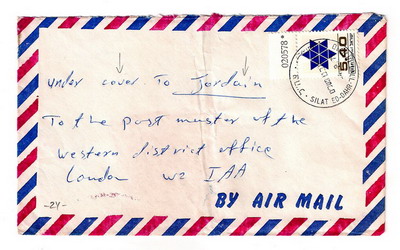 020578*
5.40
SILAT ED-DAHR
under cover To Jordain
To the post muster of the
western district office
London W2 IAA
-24-
BY AIR MAIL